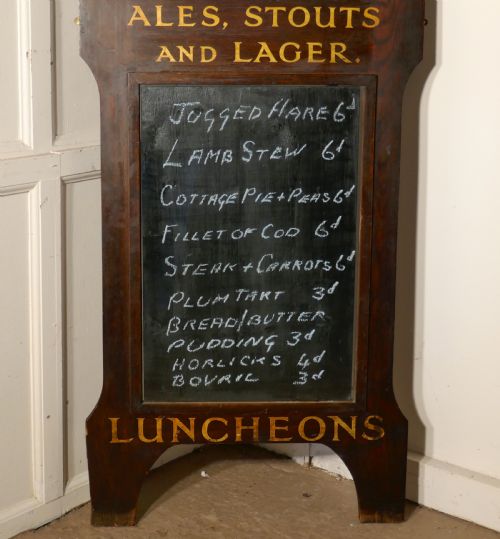 ALES, STOUTS
AND LAGER.
JUGGED HARE 6d
LAMB STEW 6d
COTTAGE PIE + PEAS 6d
FILLET OF COD 6d
STEAK + CARROTS 6d
PLUM TART 3d
BREAD/BUTTER
PUDDING 3d
HORLICKS 4d
BOVRIL 3d
LUNCHEONS